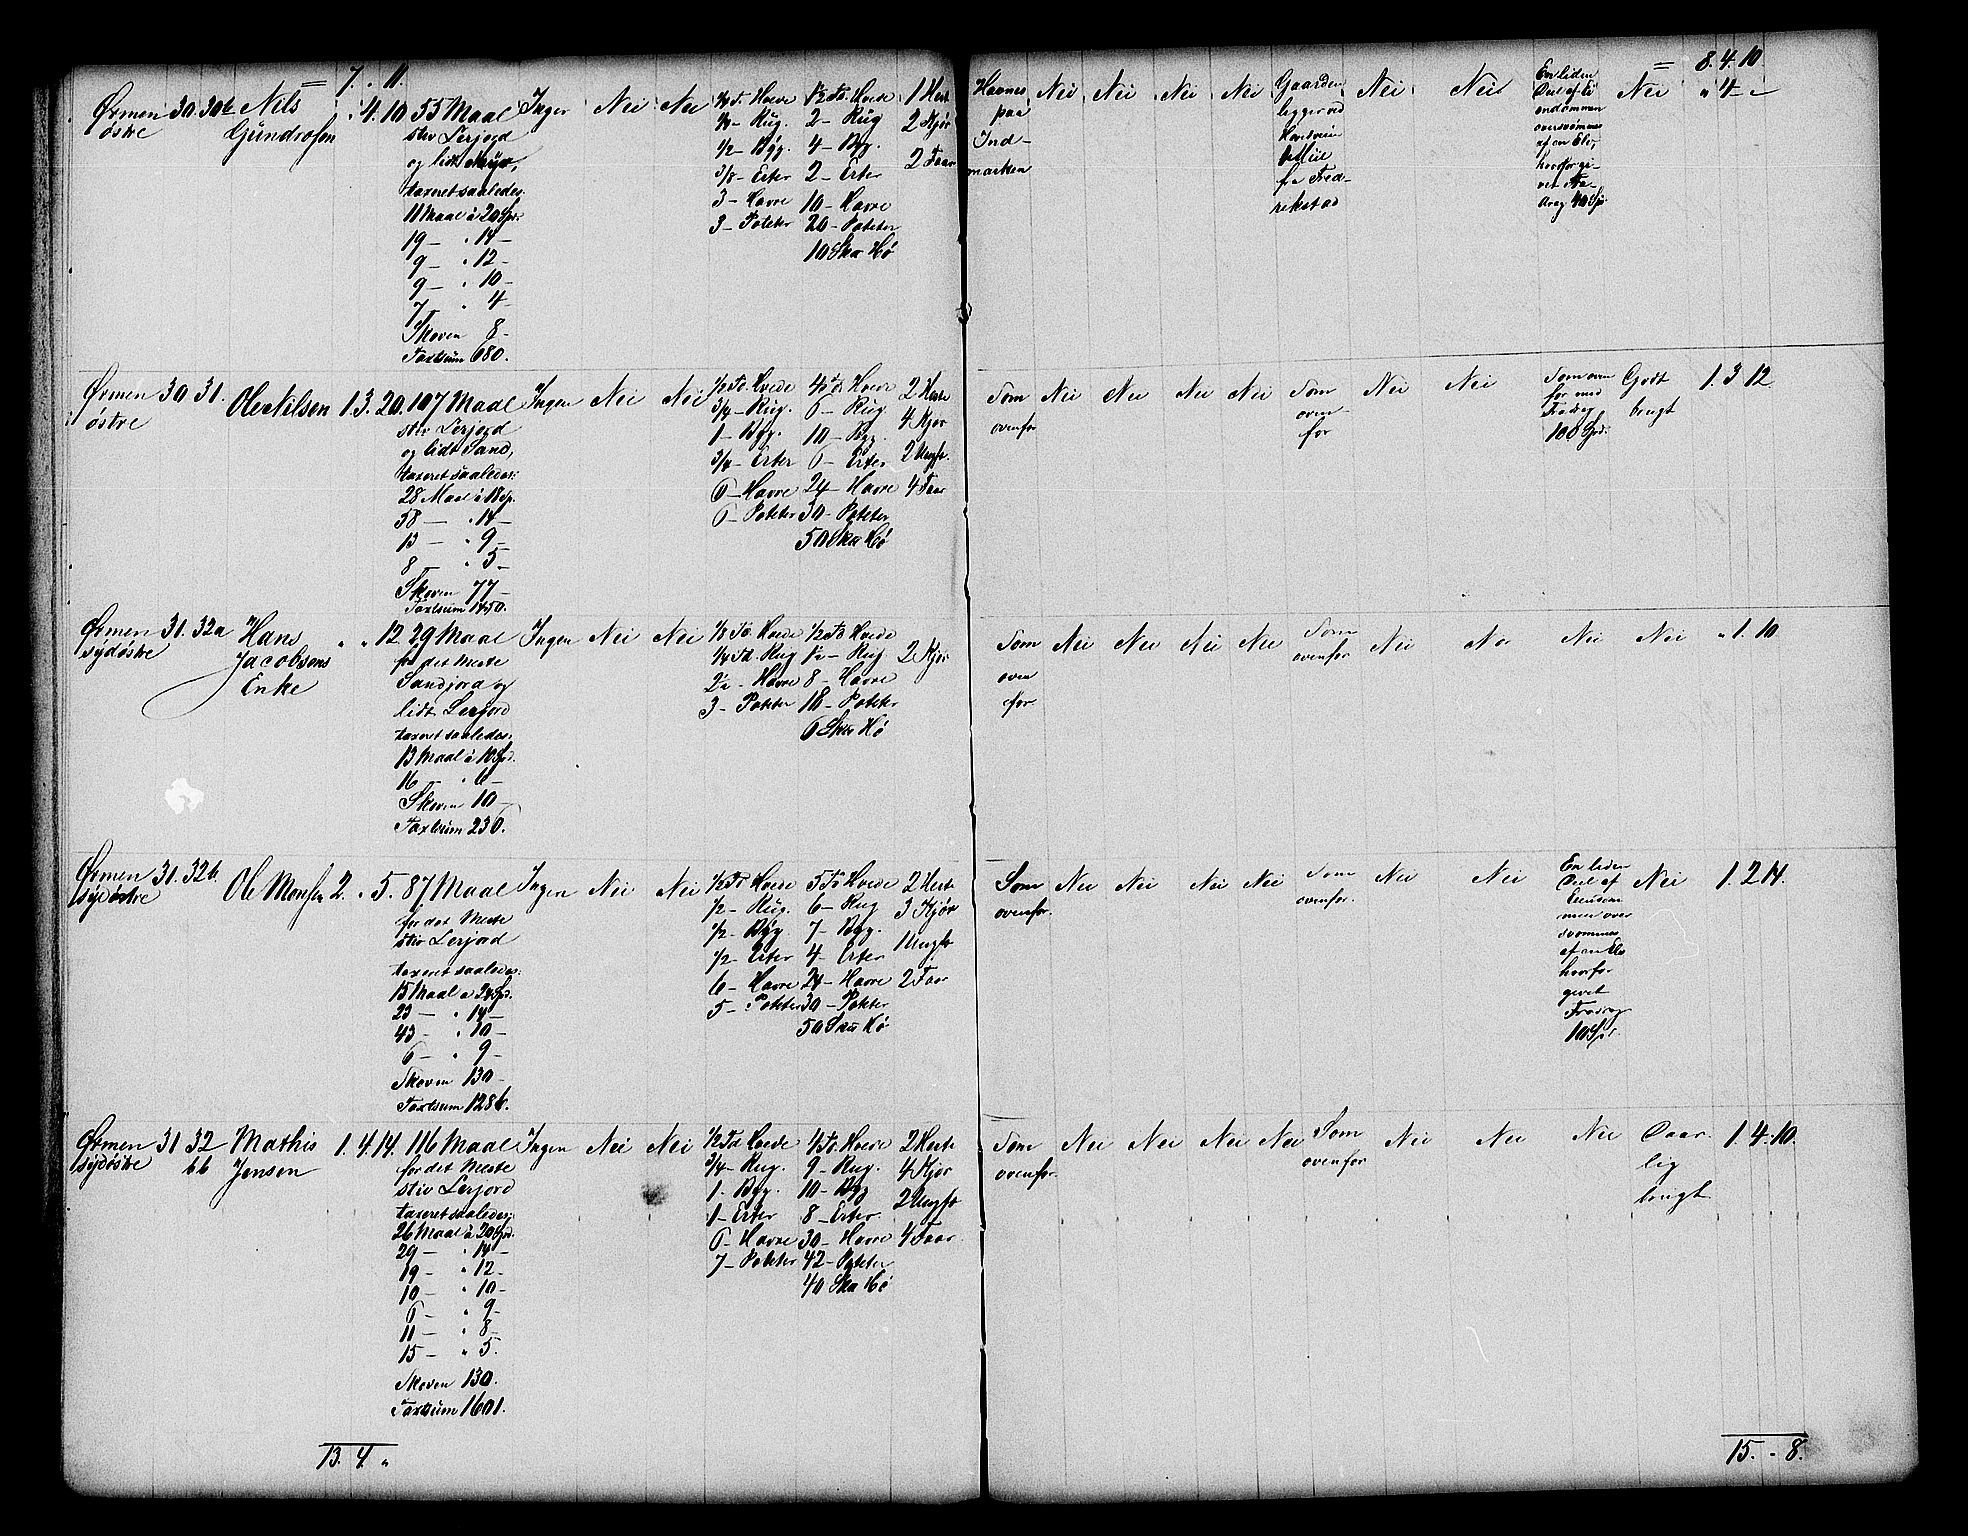 7. " 11.
8. 4. 10
Ørmen østre 30. 30b Nils Gundrosen " 4. 10
55 Maal
stiv Lerjord
og lidt Myr,
taxeret saaledes:
11 Maal à 20 Spd.
19 — " 14 —
9 — " 12 —
9 — " 10 —
7 — " 4 —
Skoven 8 —
Taxtsum 680.
Ingen Nei Nei
1/2 Td. Hvede
Rug.
1/2 — Byg.
3/8 — Erter
3 — Havre
3 — Poteter
Td. Hvede
2 — Rug
4 — Byg.
2 — Erter
10 — Havre
20 — Poteter
10 Sk℔ Hø
1 Hest
2 Kjør
2 Faar
Havnes
paa
Ind-
marken
Nei Nei Nei Nei
Gaarden
ligger ved
Hovedveien
Miil
fra Fred-
rikstad
Nei Nei
En liden
Deel af Ei
endommen
oversvømmes
af en Elv,
hvorfor gi-
vet Fra-
drag 40 Spd.
Nei " 4 "
Ørmen østre 30 31. Ole Nilsen 1. 3. 20.
107 Maal
stiv Lerjord
og lidt Sand,
taxeret saaledes:
28 Maal à 18 Sp.
58 — " 14 —
13 — " 9 —
8 — " 5 —
Skoven 77 —
Taxtsum 1450.
Ingen Nei Nei
1/2 Td. Hvede
3/4 — Rug.
1 — Byg.
3/4 — Erter
6 — Havre
6 — Poteter
4 Td. Hvede
6 — Rug
10 — Byg.
6 — Erter
24 — Havre
30 — Poteter
50 Sk℔ Hø
2 Heste
4 Kjør
2 Ungf.
4 Faar
Som
ovenfor
Nei Nei Nei Nei
Som
oven-
for
Nei Nei
Som oven
for med
Fradrag
100 Spd.
Godt
brugt
1. 3. 12
Ørmen sydøstre 31. 32a Hans Jacobsens Enke " " 12
29 Maal
for det Meste
Sandjord og
lidt Lerjord
taxeret saaledes:
13 Maal à 10 Spd.
16 — " 6 —
Skoven 10 —
Taxtsum 236.
Ingen Nei Nei
1/8 Td. Hvede
1/4 Td. Rug
2 1/2 — Havre
3 — Poteter
1/2 Td. Hvede
1 1/2 — Rug
8 — Havre
18 — Poteter
6 Sk℔ Hø
2 Kjør
Som
oven
for
Nei Nei Nei Nei
Som
ovenfor
Nei Nei Nei Nei " 1. 10
Ørmen sydøstre 31. 32b. Ole Monsen 2. " 5.
87 Maal
for det Meste
stiv Lerjord
taxeret saaledes:
15 Maal a 24 Spd.
23 — " 14 —
43 — " 10 —
6 — " 9 —
Skoven 130 —
Taxtsum 1286.
Ingen Nei Nei
1/2 Td Hvede
1/2 — Rug.
1/2 — Byg
1/2 — Erter
6 — Havre
5 — Poteter
5 Td. Hvede
6 — Rug
7 — Byg.
4 — Erter
24 — Havre
30 — Poteter
50 Sk℔ Hø
2 Heste
3 Kjør
1 Ungf.
2 Faar
Som
ovenfor.
Nei Nei Nei Nei
Som
ovenfor.
Nei Nei
En liden
Deel af
Eiendom
men over
svømmes
af en Elv
hvorfor
givet
Fradrag
10 Sp.
Nei 1. 2. 14.
Ørmen sydøstre 31 32 bb Mathis Jensen 1. 4. 14.
116 Maal
for det Meste
stiv Lerjord
taxeret saaledes:
26 Maal à 20 Spd.
29 — " 14 —
19 — " 12 —
10 — " 10 —
6 — " 9 —
11 — " 8 —
15 — " 5.
Skoven 130.
Taxtsum 1601.
Ingen Nei Nei
1/2 Td Hvede
3/4 — Rug.
1. Byg.
1 — Erter
6 — Havre
7 — Poteter
4 Td. Hvede
9 — Rug.
10 — Byg
8 — Erter
30 — Havre
42 — Poteter
40 Sk℔ Hø
2 Heste
4 Kjør
2 Ungf.
4 Faar
Som
ovenfor.
Nei Nei Nei Nei
Som
ovenfor
Nei Nei Nei
Daar-
lig
brugt
1. 4. 10.
13. 4. "
15. " 8.